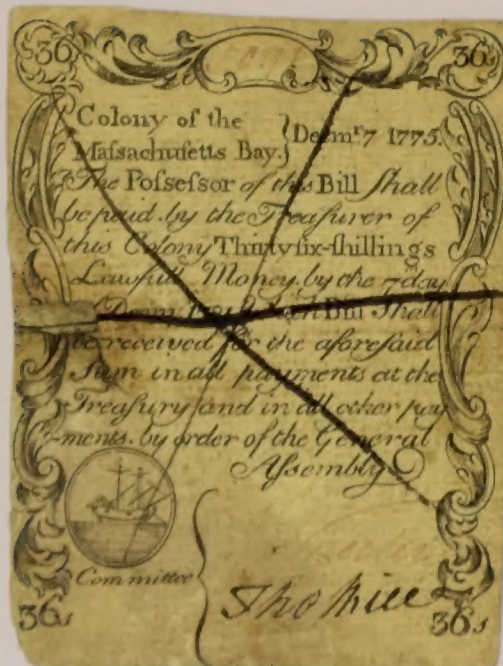 36 36s
Colony of the
Massachusetts Bay. } Decmr. 7 1775.
The Possessor of this Bill Shall
be paid. by the Treasurer of
this Colony Thirty six-shillings
Lawfull Money. by the 7 day
Bill Shall
be received for the aforesaid
Sum in all payments at the
Treasury and in all other pay
-ments. by order of the General
Assembly
Committee
Tho
36s 36s